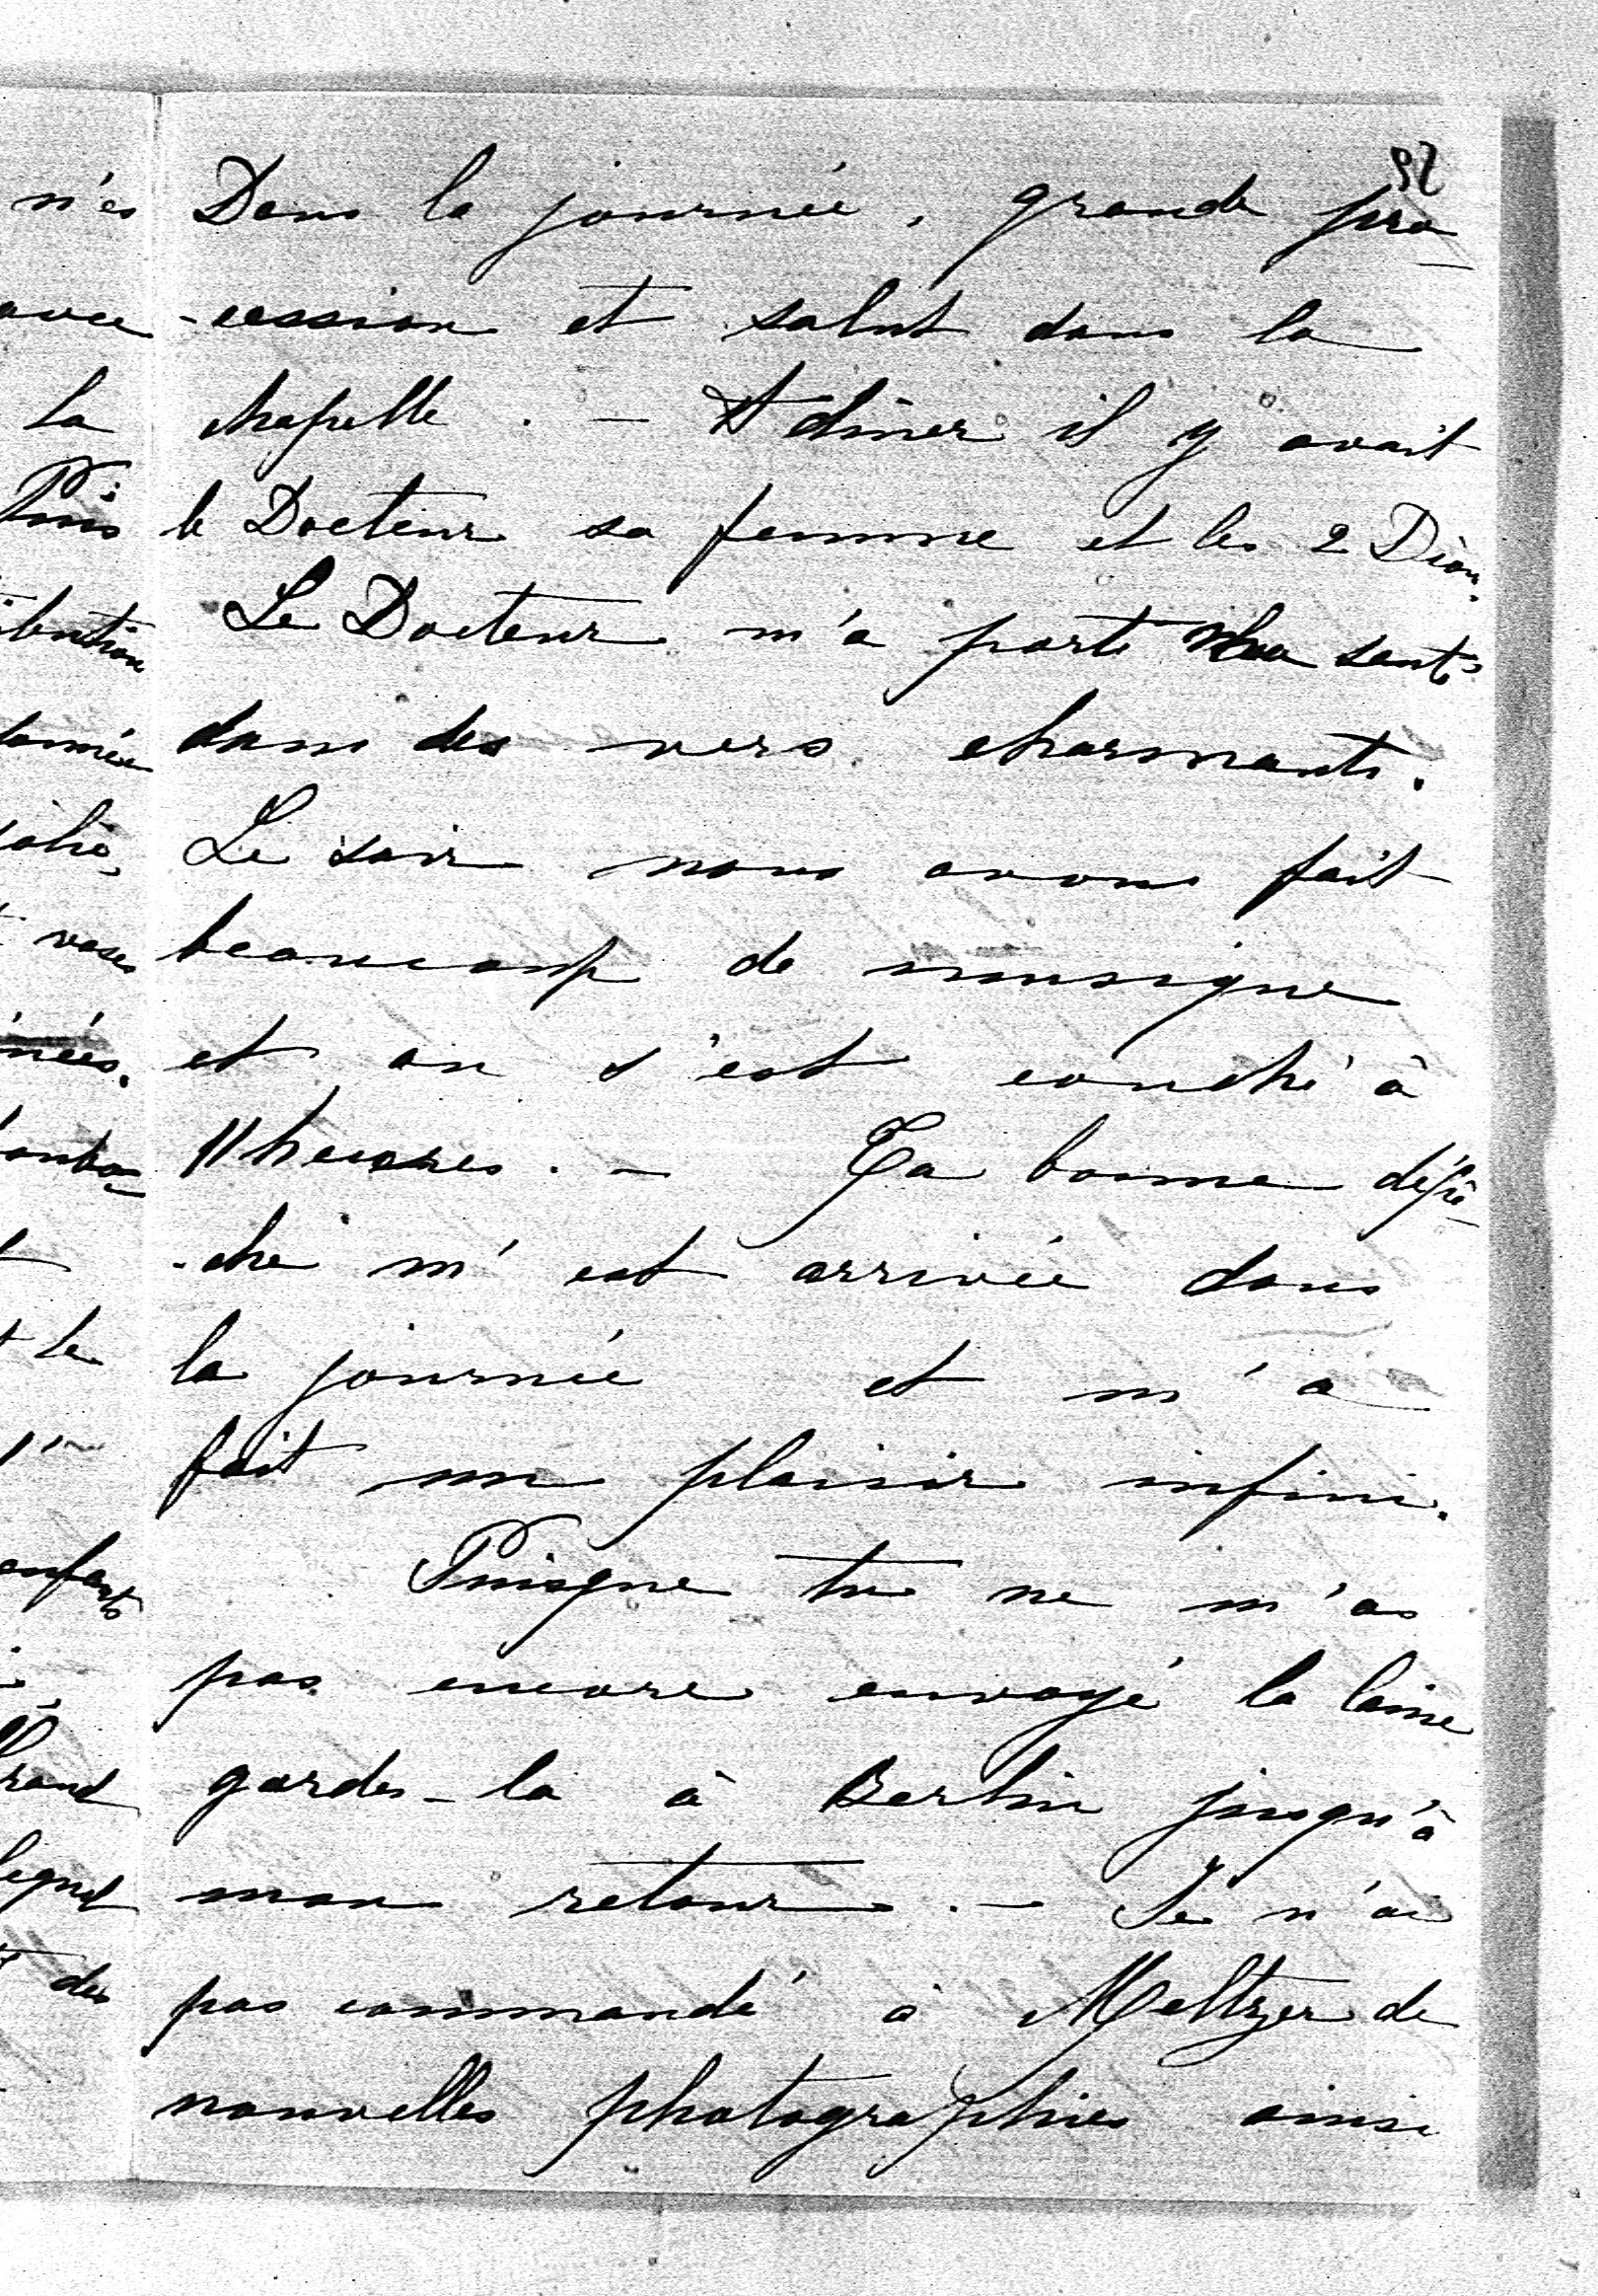 Dans la journée, grande pro-
-cession et salut dans la
chapelle. - A diner il y avait
le Docteur sa femme et les 2 Dion.
Le Docteur m'a porté ma santé
dans des vers charmants.
Le soir nous avons fait
beaucoup de musique
et on s'est couché à
11 heures. - Ta bonne dépê-
-che m'est arrivée dans
la journée et m'a
fait un plaisir infini.
Puisque tu ne m'as
pas encore envoyé la laine
gardes-la à Berlin jusqu'à
mon retour. - Je n'ai
pas commandé à Meltzer de
nouvelles photographies ainsi